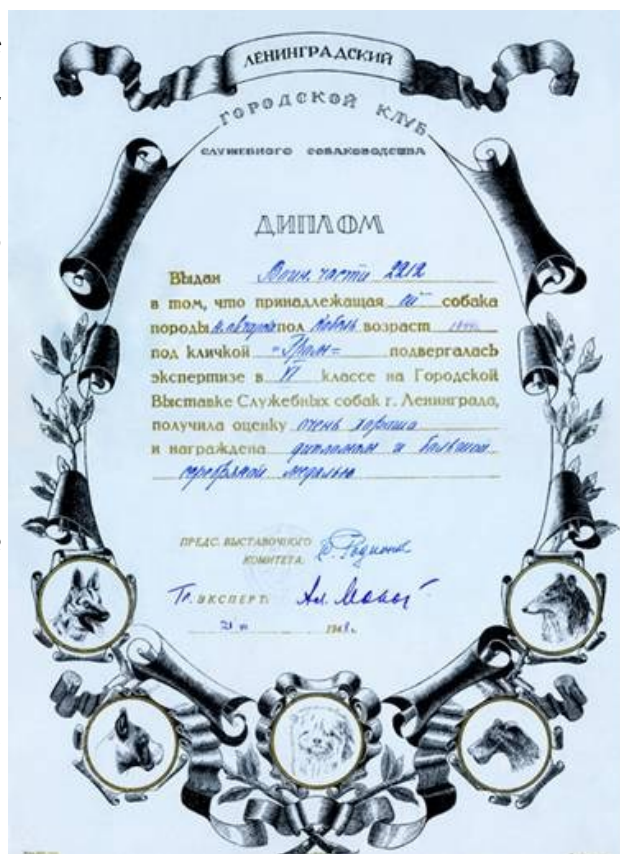 ЛЕНИНГРАДСКИЙ
ГОРОДСКОЙ КЛУБ
СЛУЖЕБНОГО СОБАКОВОДСТВА
ДИПЛОМ
Выдан Воин. части 2212
в том, что принадлежащая ей собака
породы пол кобель возраст
под кличкой подвергалась
экспертизе в VI классе на Городской
Выставке Служебных собак г. Ленинграда,
получила оценку очень хорошо
и награждена дипломом и большой
серебряной медалью
ПРЕДС. ВЫСТАВОЧНОГО
КОМИТЕТА:
Гл. ЭКСПЕРТ:
194 г.